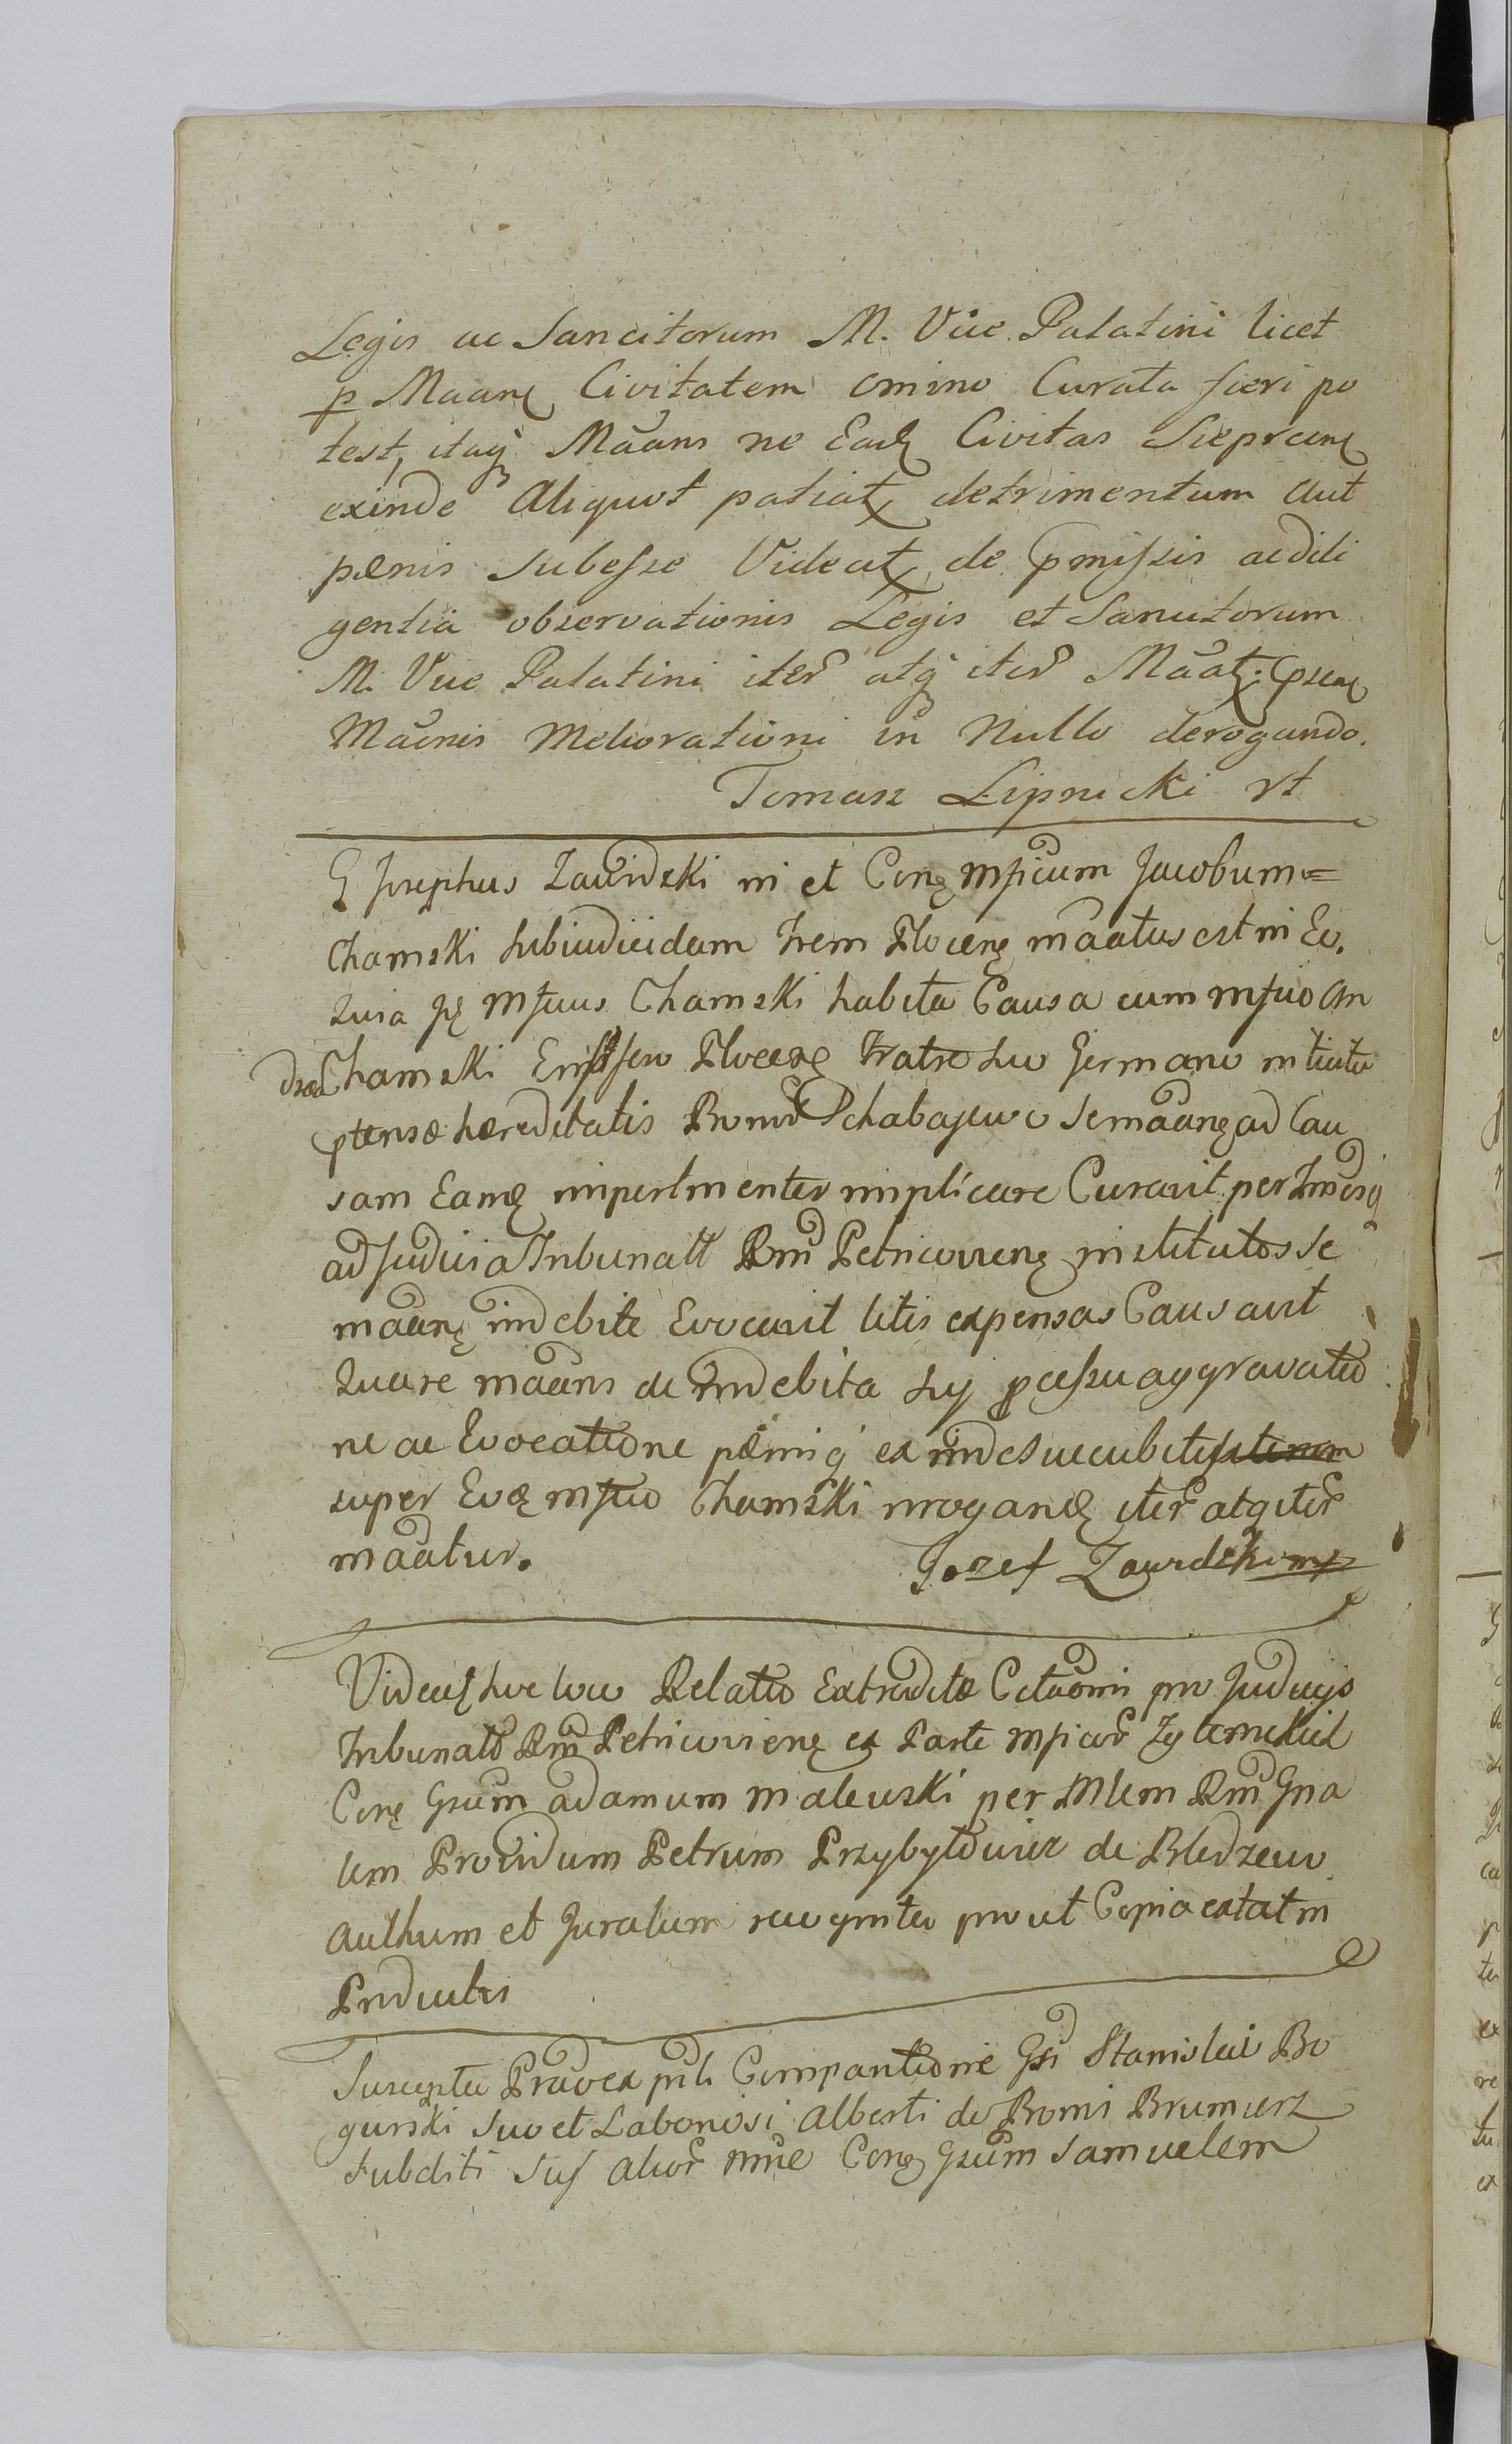 Legis ac Sancitorum M. Vice Palatini licet
p Maanę Civitatem omino Curata fieri po
test, itaq Māans ne Eadę Civitas Sieprcenę
exinde Aliquot patiatę detrimentum aut
pænis subesse Videatę de pmissis ac dili
gentia observationis Legis et Sancitorum
M. Vice Palatini iter atq iter Māatę psenę
Māonis Meliorationi in Nullo derogando.
Tomasz Lipnicki rt
G Josephus Zawidzki in et Conę Mficum Jacobum=
Chamski Subiudicidam Trem Plocenę maatus est in Eo.
Quia Ję Mficus Chamski habita Causa cum Mfico An
drea Chamski Plocenę Fratre suo Germano intuitu
ptensæ hæreditatis Bonor Chabajewo se maanę ad Cau
sam Eamę impertinenter implicare Curavit per
ad Judicia Tribunalt Rni Petricovienę institutos se
maanę indebite Evocavit litis expensas Causavit
Quare maans de indebita suj pcessu aggravatio
ne ac Evocatione pænisq ex inde succubitis
super Eoę Mfico Chamski irroganę iter atq iter
maatur. Jozef Zawidzki mp
Videatę hoc loco Relatio Extraditæ Citaōnis pro Judicijs
Tribunalt Rni Petricovienę ex Parte Mficor
Conę Gsum Adamum Malewski per Mlem Rni Gna
lem Providum Petrum Przybyłowicz de Bledzewo
authum et Juratum recognita prout Copia extat in
Inductis
Suscepta Prōva ex pnli Comparitione Gsi Stanislai Bo
gurski suo et Laboriosi Alberti de Bonis
subditi sui alior nōie Conę Gsum Samuelem